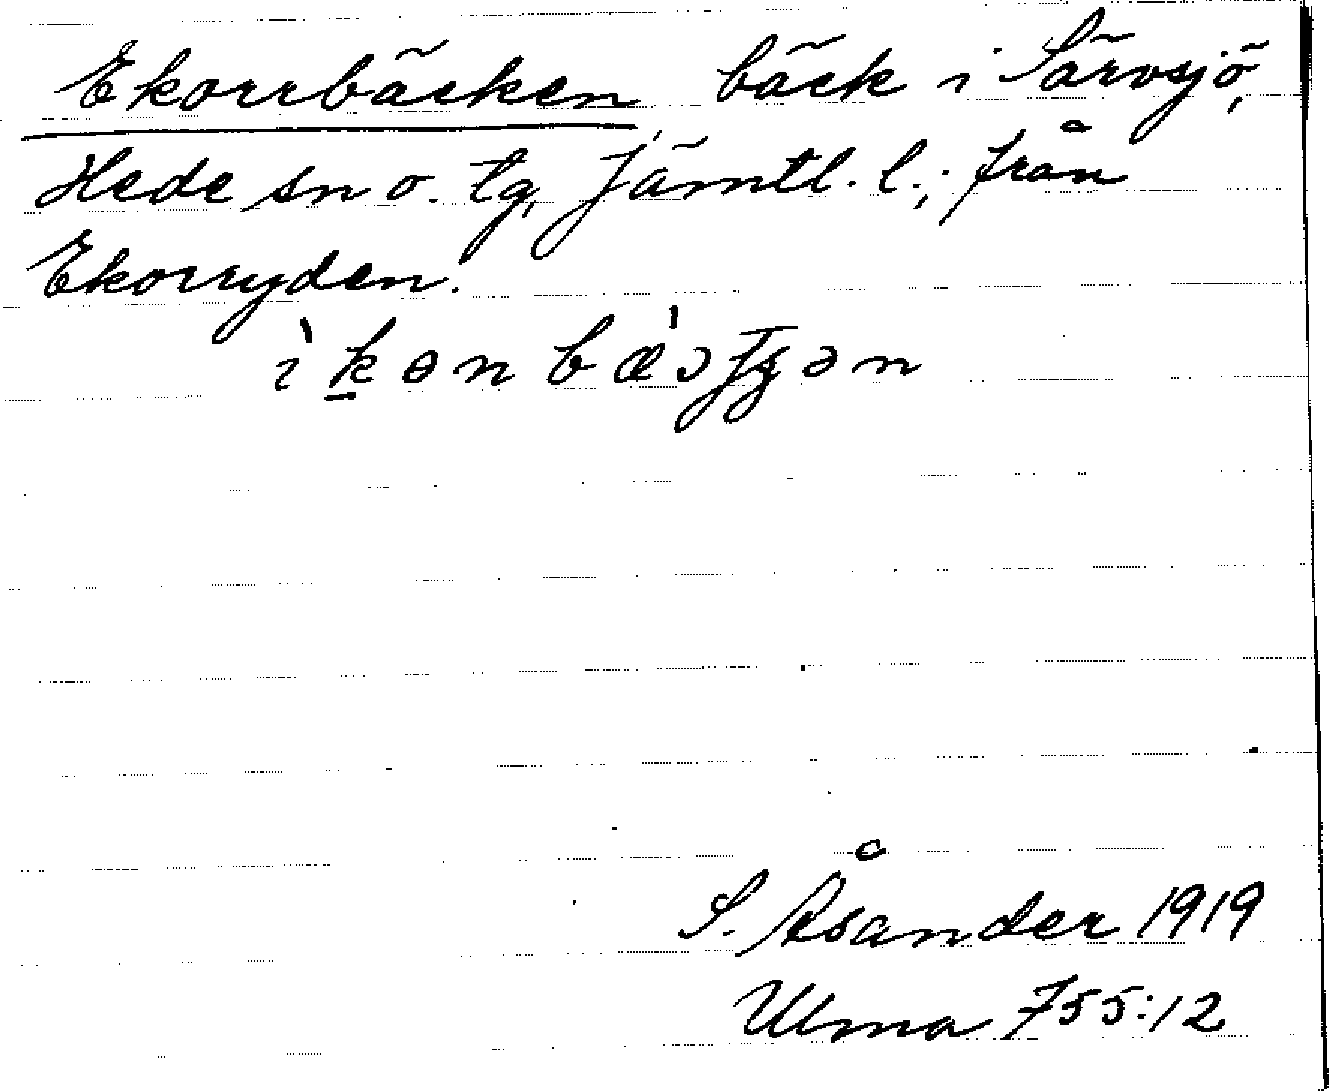 Ekorrbäcken, bäck i Särvsjö,
Hede sn o. tg, Jämtl. l.; från
Ekorryden.
S. Åsander 1919
Ulma 755:12